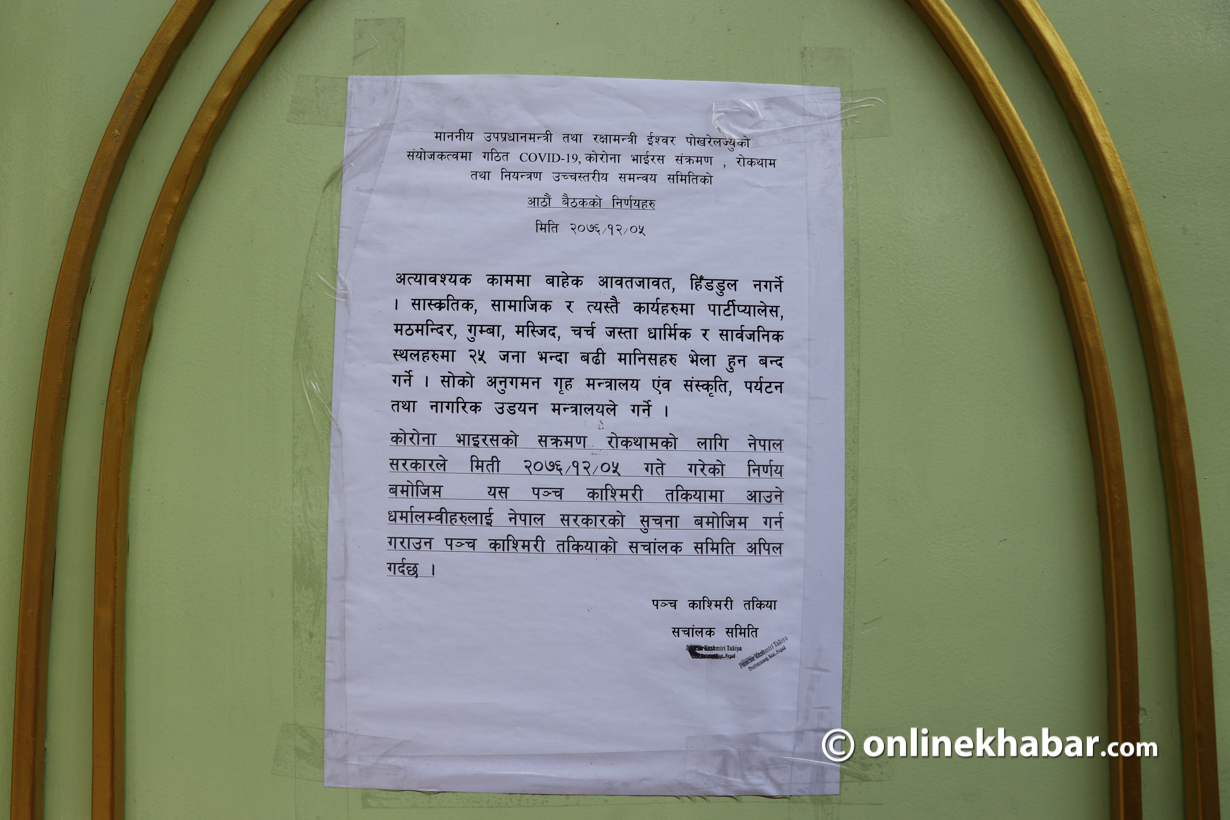 माननीय उपप्रधानमन्त्री तथा रक्षामन्त्री ईश्वर पोखरेलज्युको
संयोजकत्वमा गठित COVID-19, कोरोना भाईरस संक्रमण , रोकथाम
तथा नियन्त्रण उच्चस्तरीय समन्वय समितिको
आठौं बैठकको निर्णयहरु
मिति २०७६/१२/०५
अत्यावश्यक काममा बाहेक आवतजावत, हिँडडुल नगर्ने
। सास्कतिक, सामाजिक र त्यस्तै कार्यहरुमा पार्टीप्यालेस,
मठमन्दिर, गुम्बा, मस्जिद, चर्च जस्ता धार्मिक र सार्वजनिक
स्थलहरुमा २५ जना भन्दा बढी मानिसहरु भेला हुन बन्द
गर्ने । सोको अनुगमन गृह मन्त्रालय एंव संस्कृति, पर्यटन
तथा नागरिक उडयन मन्त्रालयले गर्ने ।
कोरोना भाइरसको सक्रमण रोकथामको लागि नेपाल
सरकारले मिती २०७६/१२/०५ गते गरेको निर्णय
बमोजिम यस पञ्च काश्मिरी तकियामा आउने
धर्मालम्वीहरुलाई नेपाल सरकारको सुचना बमोजिम गर्न
गराउन पञ्च काश्मिरी तकियाको सचांलक समिति अपिल
गर्दछ ।
पञ्च काश्मिरी तकिया
सचांलक समिति
Kashmiri Takiya
Kashmiri Takiya
© onlinekhabar.com